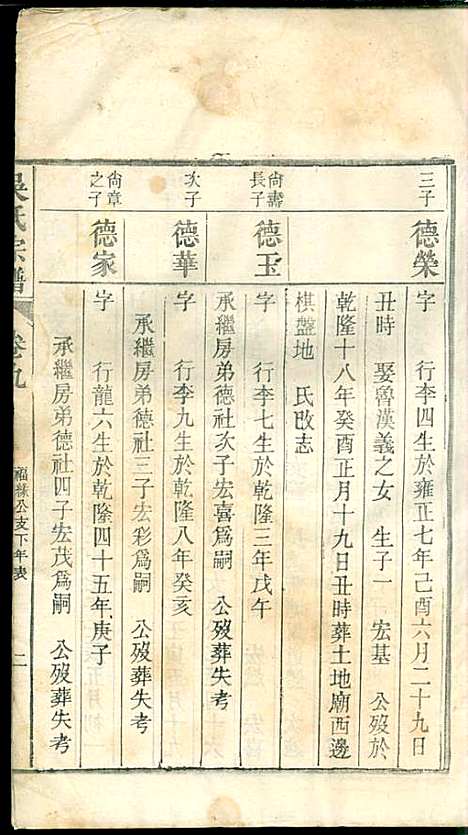 三子
德榮
字　行李四生於雍正七年己酉六月二十九日
丑時　娶魯漢義之女　生子一　宏基　公歿於
乾隆十八年癸酉正月十九日丑時葬土地廟西邊
棋盤地　氏改志
尙壽
長子
德玉
字　行李七生於乾隆三年戊午
承繼房弟德社次子宏喜爲嗣　公歿葬失考
次子
德華
字　行李九生於乾隆八年癸亥
承繼房弟德社三子宏彩爲嗣　公歿葬失考
尙章
之子
德家
字　行龍六生於乾隆四十五年庚子
承繼房弟德社四子宏茂爲嗣　公歿葬失考
吳氏宗譜
卷九
福緣公支下年表
二